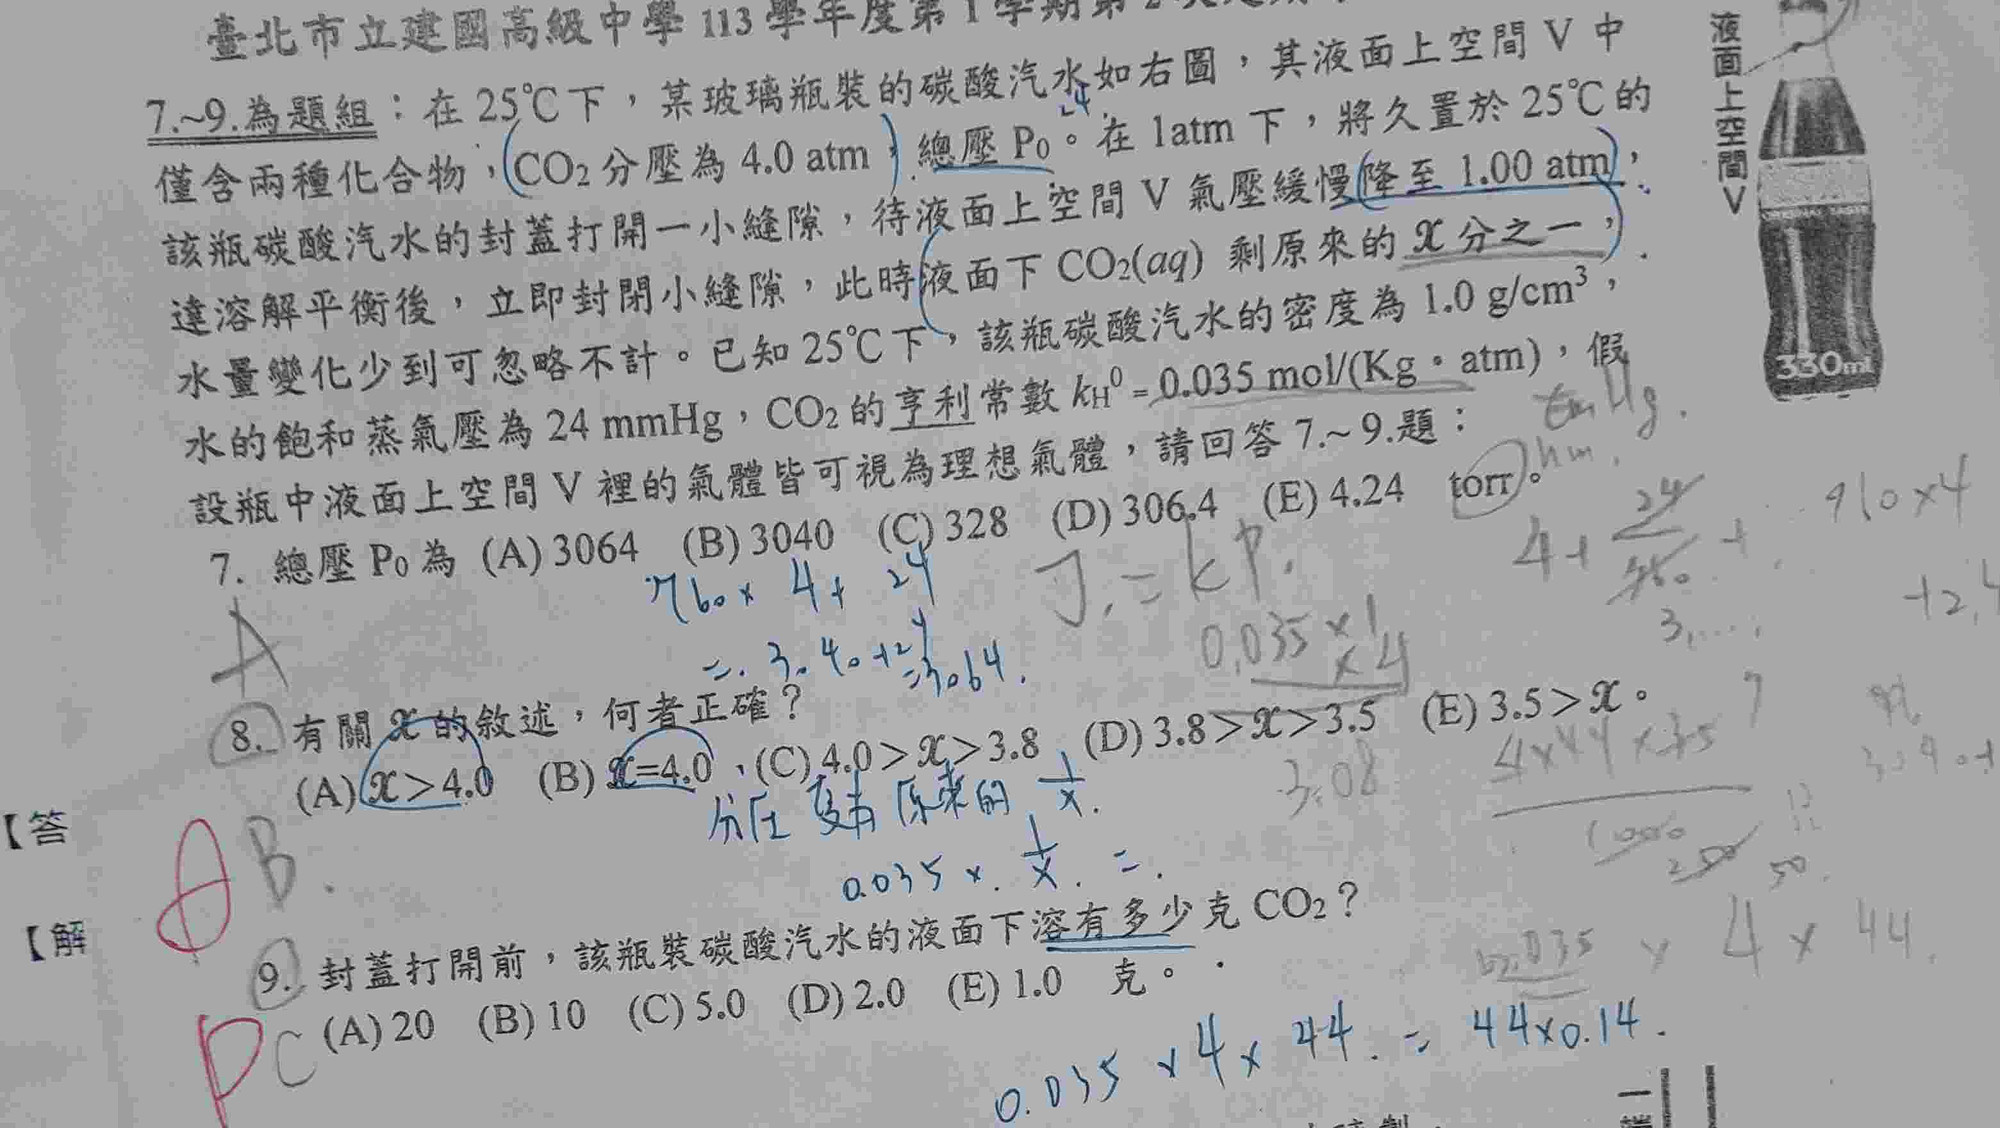 臺北市立建國高級中學 113 學年度第 1 學期第 2
7.~9.為題組：在 25℃下，某玻璃瓶裝的碳酸汽水如右圖，其液面上空間 V 中
僅含兩種化合物，CO₂分壓為 4.0 atm，總壓 P₀。在 1atm 下，將久置於 25℃的
24
該瓶碳酸汽水的封蓋打開一小縫隙，待液面上空間 V 氣壓緩慢降至 1.00 atm，
達溶解平衡後，立即封閉小縫隙，此時液面下 CO₂(aq) 剩原來的 x 分之一，
水量變化少到可忽略不計。已知 25℃下，該瓶碳酸汽水的密度為 1.0 g/cm³，
水的飽和蒸氣壓為 24 mmHg，CO₂的亨利常數 kH⁰=0.035 mol/(Kg·atm)，假
設瓶中液面上空間 V 裡的氣體皆可視為理想氣體，請回答 7.~9.題：
液面上空間 V
330ml
7. 總壓 P₀為 (A) 3064 (B) 3040 (C) 328 (D) 306.4 (E) 4.24 torr。
760× 4+ 24
=3040+24
=3064.
A
4+ 24/760
0.035 ×1
×4
8. 有關 x 的敘述，何者正確？
(A) x＞4.0 (B) x=4.0 (C) 4.0＞x＞3.8 (D) 3.8＞x＞3.5 (E) 3.5＞x。
分压 隻有 原來的 1/x.
0.035 × 1/x =
3.08
4×44×35
50
A
B.
【答
【解
9. 封蓋打開前，該瓶裝碳酸汽水的液面下溶有多少克 CO₂？
(A) 20 (B) 10 (C) 5.0 (D) 2.0 (E) 1.0 克。
C
0.035 × 4 × 44.
0.035 × 4 × 44. = 44×0.14.